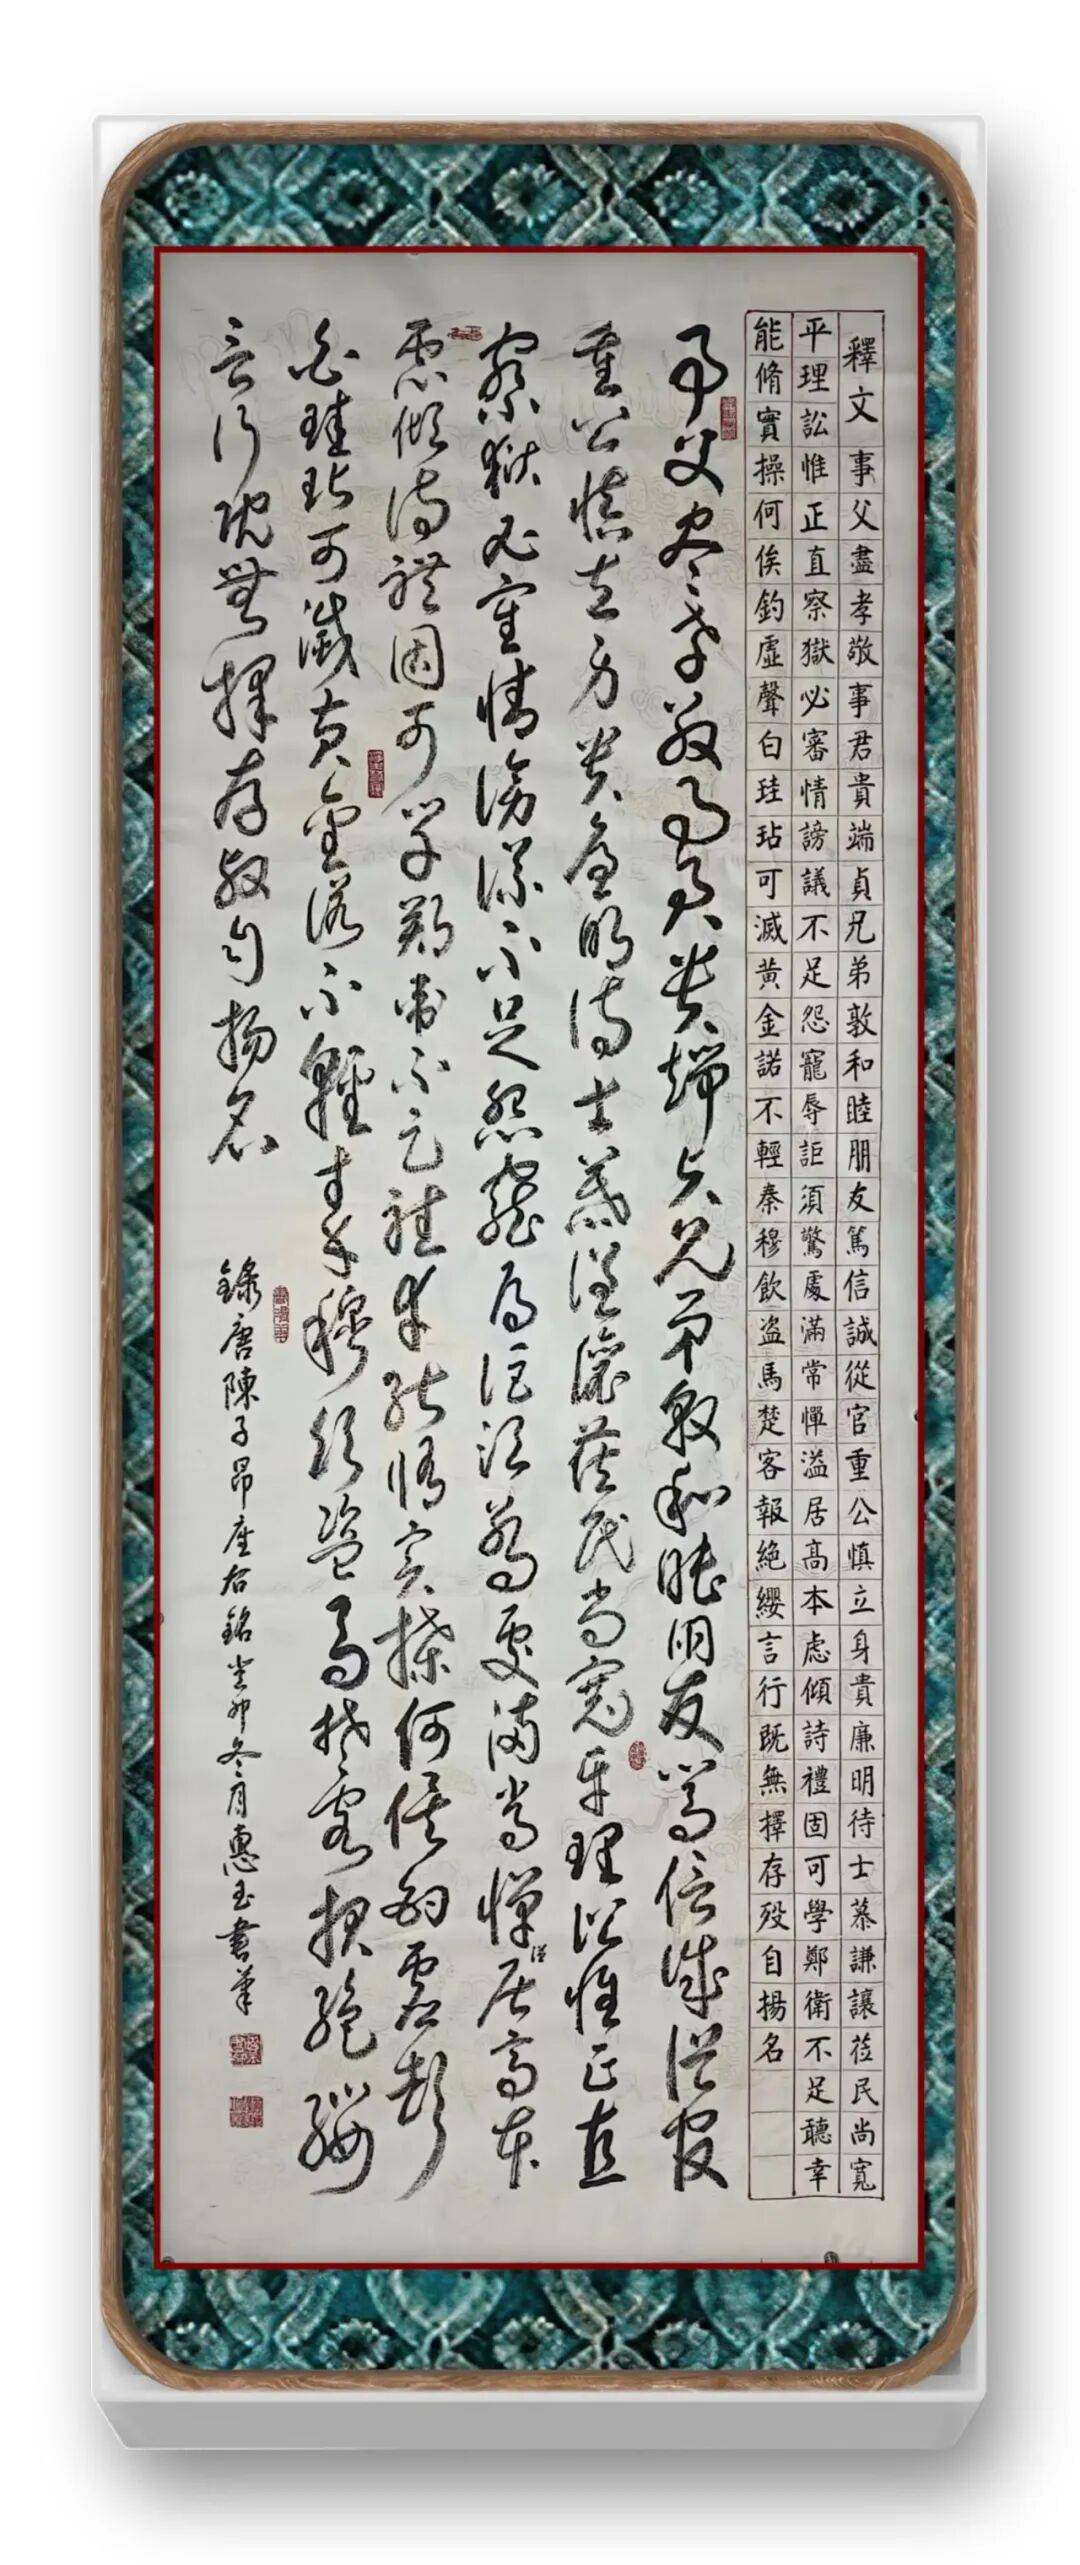 釋文 事父盡孝敬事君貴端貞兄弟敦和睦朋友篤信誠從官重公慎立身貴廉明待士慕謙讓莅民尚寬
平理訟惟正直察獄必審情謗議不足怨寵辱詎須驚處滿常憚溢居高本虑傾詩禮固可學鄭衛不足聽幸
能脩實操何俟釣虛聲白珪玷可滅黃金諾不輕秦穆飲盗馬楚客報絶纓言行既無擇存歿自揚名
事父盡孝敬事君貴端貞兄弟敦和睦朋友篤信誠從官
重公慎立身貴廉明待士慕謙讓莅民尚寬平理訟惟正直
察獄必審情謗議不足怨寵辱詎須驚處滿常憚溢居高本
慮傾詩禮固可學鄭衛不足聽幸能脩實操何俟釣虛聲
白珪玷可滅黃金諾不輕秦穆飲盜馬楚客報絶纓
言行既無擇存歿自揚名
錄唐陳子昂座右銘癸卯冬月惠玉書筆